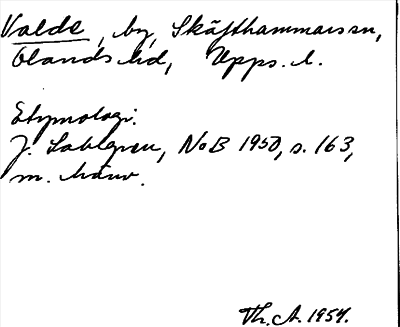 Valde, by, Skäfthammars sn,
Olands hd, Upps. l.
Etymologi:
J. Sahlgren, NoB 1950, s. 163,
m. hänv.
Th. A. 1954.